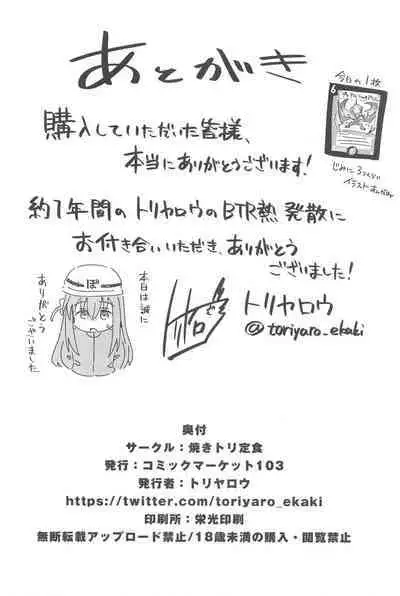 あとがき
今日の1枚
6
購入していただいた皆様、
本当にありがとうございます!
約1年間のトリヤロウのBTR熱発散に
お付き合いいただき、ありがとう
ございました!
ぼ
本日は誠に
ありがとう
ございました
トリヤロウ
@toriyaro_ekaki
奥付
サークル:焼きトリ定食
発行:コミックマーケット103
発行者:トリヤロウ
https://twitter.com/toriyaro_ekaki
印刷所:栄光印刷
無断転載アップロード禁止/18歳未満の購入・閲覧禁止